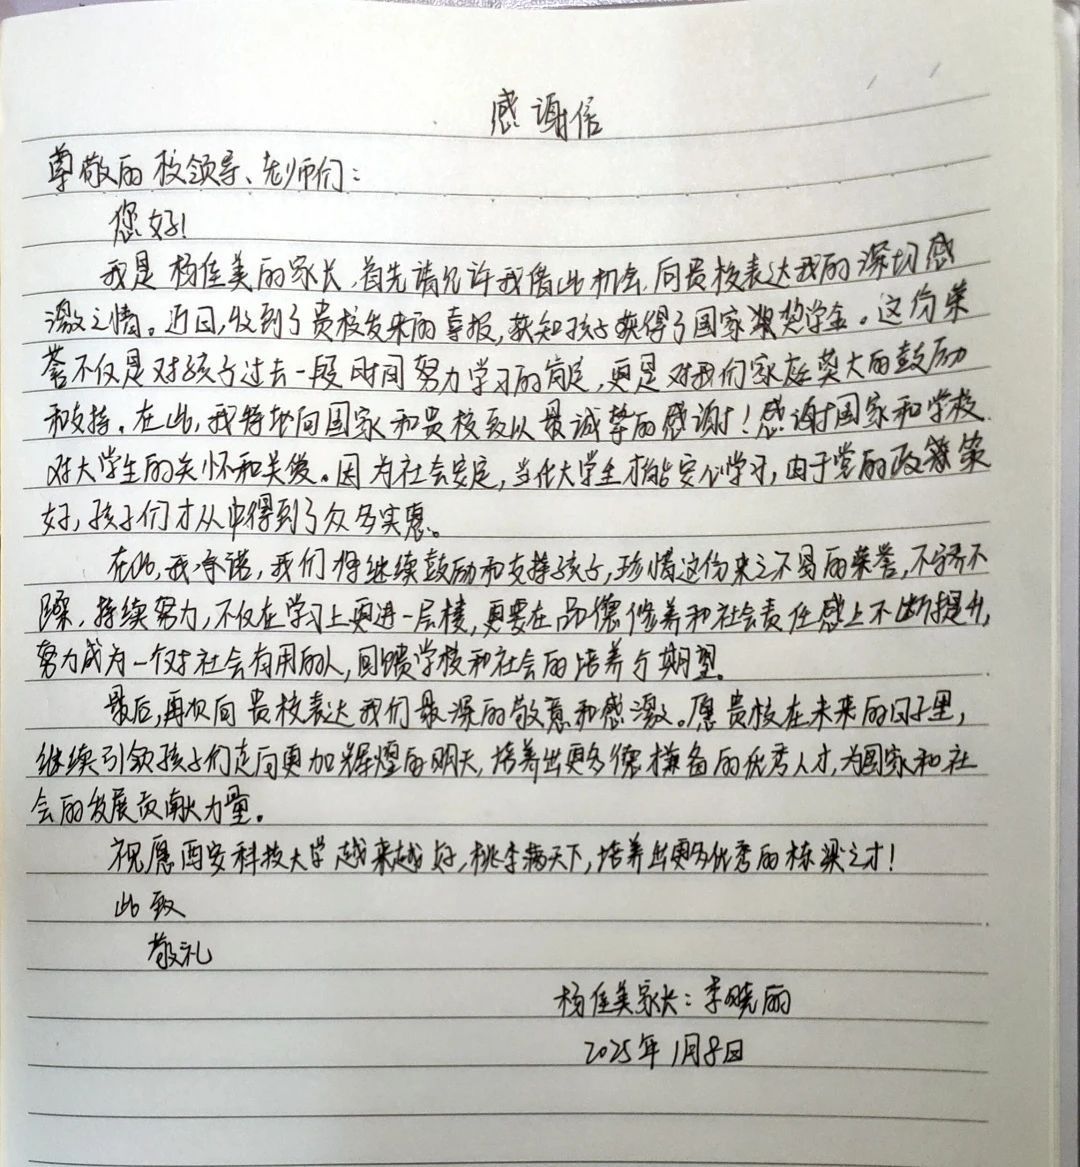 感谢信
尊敬的校领导、老师们：
您好！
我是杨佳美的家长，首先请允许我借此机会，向贵校表达我的深切感
激之情。近日，收到了贵校发来的喜报，获知孩子获得了国家奖学金。这份荣
誉不仅是对孩子过去一段时间努力学习的肯定，更是对我们家庭莫大的鼓励
和支持。在此，我特地向国家和贵校致以最诚挚的感谢！感谢国家和学校
对大学生的关怀和关爱。因为社会安定，当代大学生才能安心学习，由于党的政策
好，孩子们才从中得到了众多实惠。
在此，我承诺，我们将继续鼓励和支持孩子，珍惜这份来之不易的荣誉，不骄不
躁，持续努力，不仅在学习上更进一层楼，更要在品德修养和社会责任感上不断提升，
努力成为一个对社会有用的人，回馈学校和社会的培养与期望。
最后，再次向贵校表达我们最深的敬意和感激。愿贵校在未来的日子里，
继续引领孩子们走向更加辉煌的明天，培养出更多德才兼备的优秀人才，为国家和社
会的发展贡献力量。
祝愿西安科技大学越来越好，桃李满天下，培养出更多优秀的栋梁之才！
此致
敬礼
杨佳美家长：李晓丽
2025年1月8日